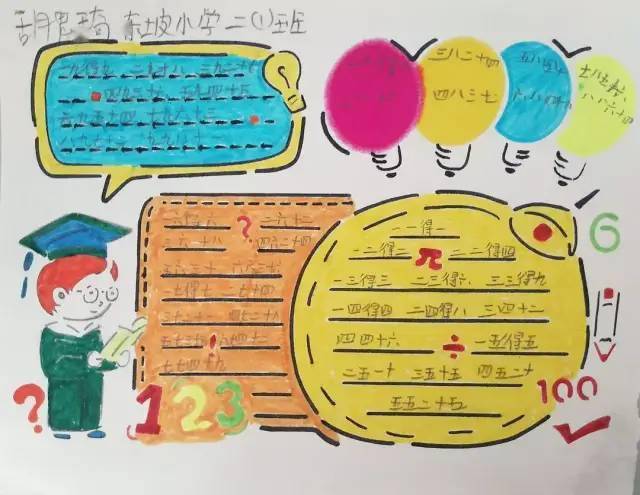 胡思琦 东坡小学二(1)班
一九得九 二九十八 三九二十七
四九三十六 五九四十五
六九五十四 七九六十三
八九七十二 九九八十一
三八二十四
五八四十
六八四十八
七八五十六
八八六十四
一六得六 ? 二六十二
三六十八 四六二十四
五六三十 六六三十六
一七得七 二七十四
三七二十一 四七二十八
五七三十五 六七四十二
七七四十九
一一得一
一二得二 π 二二得四
一三得三 二三得六 三三得九
一四得四 二四得八 三四十二
四四十六 ÷ 一五得五
二五一十 三五十五 四五二十
五五二十五
6
100
?
123